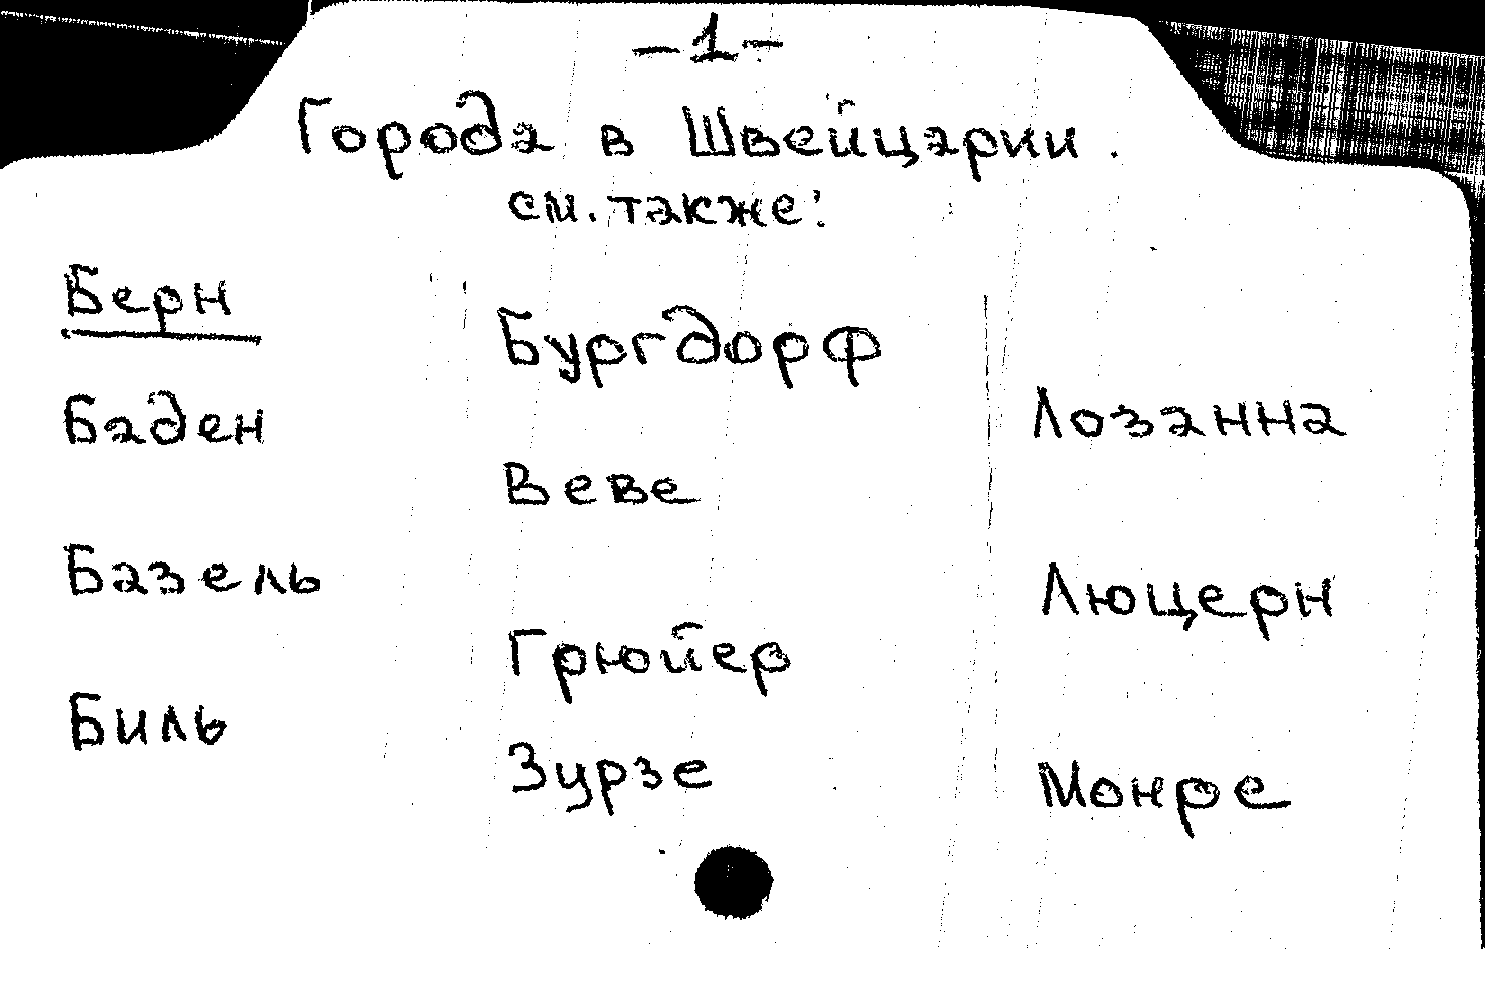 -1-
Города в Швейцарии.
см. также:
Берн
Баден
Базель
Биль
Бургдорф
Веве
Грюйер
Зурзе
Лозанна
Люцерн
Монре